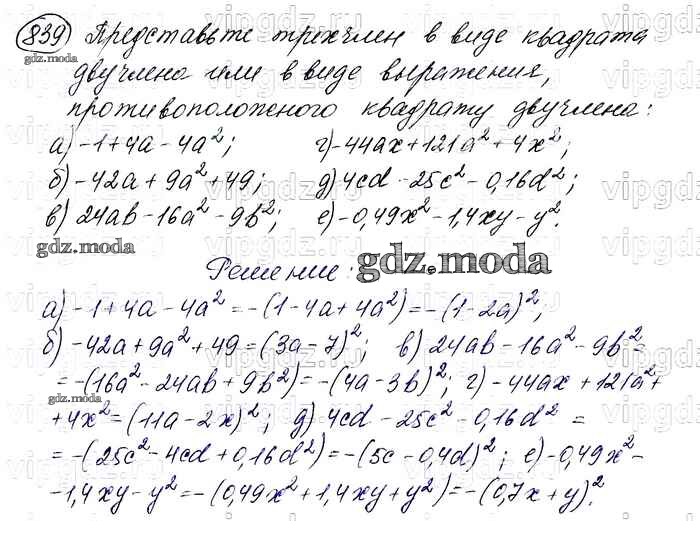 839 Представьте трехчлен в виде квадрата
gdz.moda
двучлена или в виде выражения,
противоположного квадрату двучлена:
а) -1+4a-4a²; г) -44ax+121a²+4x²;
б) -42a+9a²+49; д) 4cd-25c²-0,16d²;
в) 24ab-16a²-9b²; е) -0,49x²-1,4xy-y².
gdz.moda
Решение: gdz.moda
а) -1+4a-4a²=-(1-4a+4a²)=-(1-2a)²;
б) -42a+9a²+49=(3a-7)²; в) 24ab-16a²-9b²=
=-(16a²-24ab+9b²)=-(4a-3b)²; г) -44ax+121a²+
gdz.moda
+4x²=(11a-2x)²; д) 4cd-25c²-0,16d²=
=-(25c²-4cd+0,16d²)=-(5c-0,4d)²; е) -0,49x²-
-1,4xy-y²=-(0,49x²+1,4xy+y²)=-(0,7x+y)².